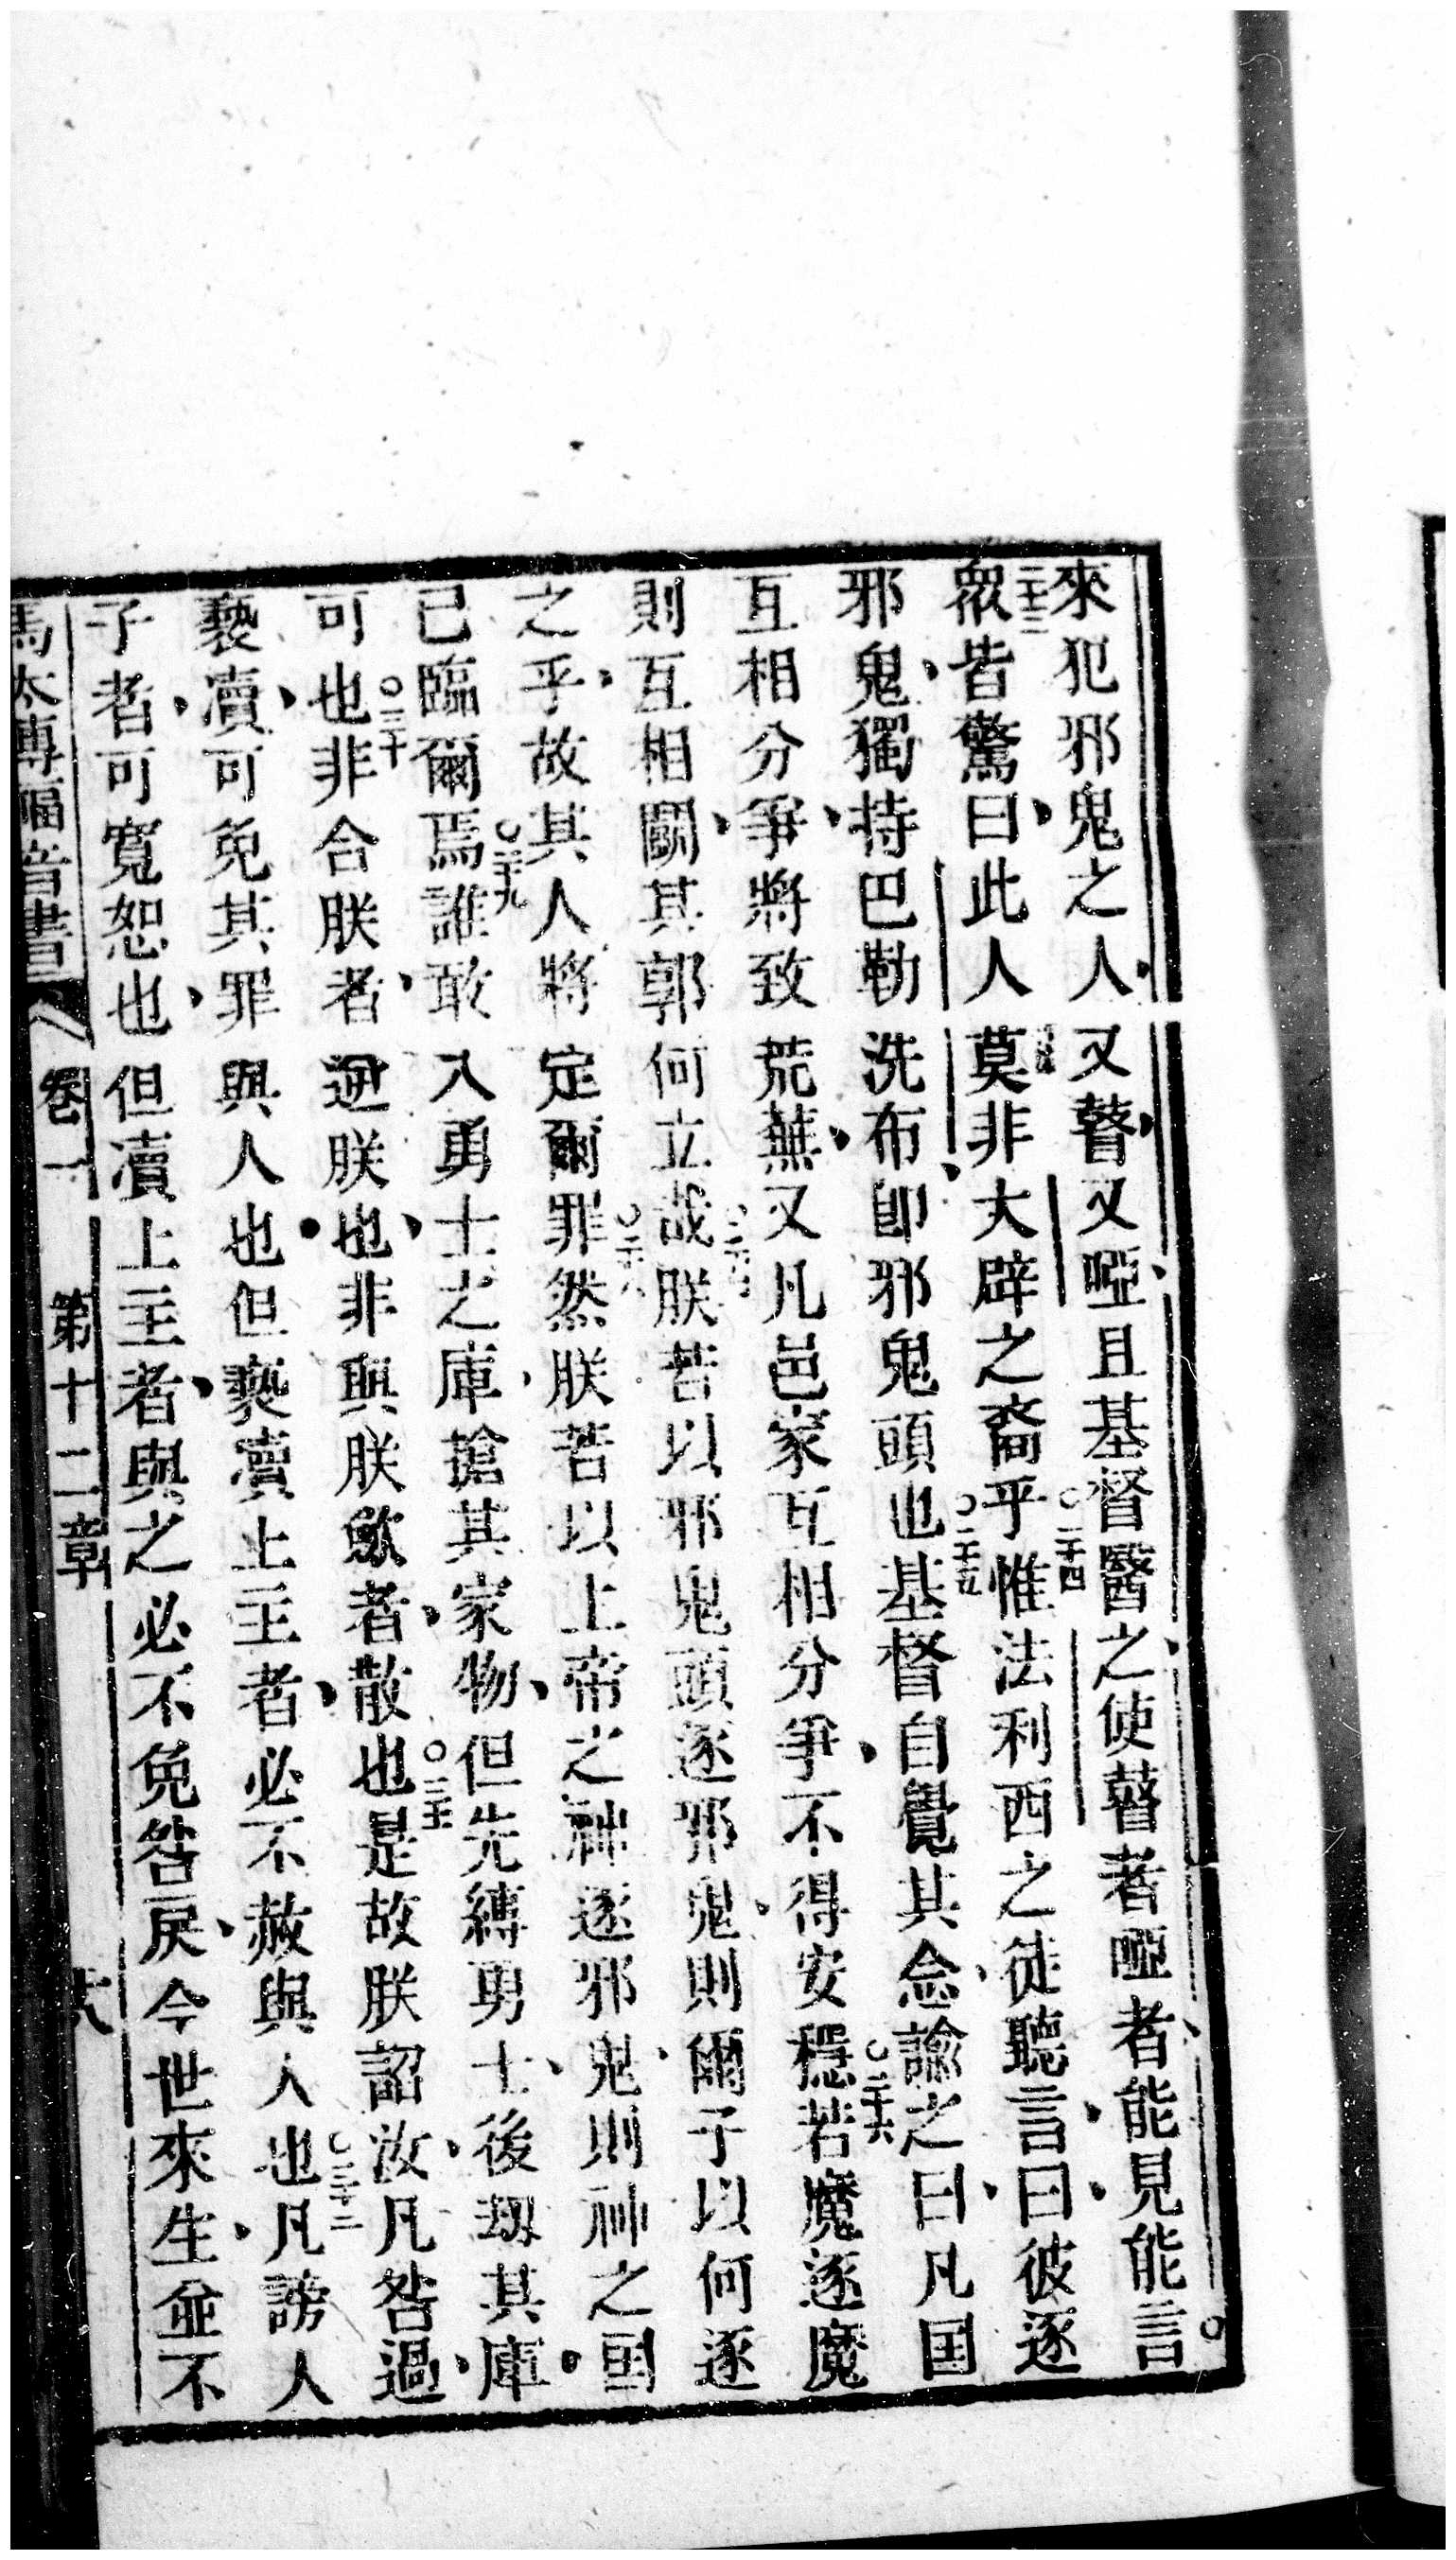 來犯邪鬼之人、又瞽、又啞、且基督醫之、使瞽者啞者、能見能言。
二十三衆皆驚曰、此人莫非大辟之裔乎○二十四惟法利西之徒聽言、曰、彼逐
邪鬼、獨持巴勒洗布、卽邪鬼頭也○二十五基督自覺其念、諭之曰、凡国
互相分爭、將致荒蕪、又凡邑家互相分爭、不得安穩○二十六若魔逐魔
則互相鬬、其郭何立哉○二十七朕若以邪鬼頭逐邪鬼、則爾子以何逐
之乎、故其人將定爾罪○二十八然朕若以上帝之神逐邪鬼、則神之国
已臨爾焉○二十九誰敢入勇士之庫、搶其家物、但先縛勇士、後刼其庫。
可也○三十非合朕者、逆朕也、非與朕歛者、散也○三十一是故朕詔汝、凡咎過、
褻瀆、可免其罪與人也。但褻瀆上主者、必不赦與人也○三十二凡謗人
子者、可寬恕也、但瀆上主者、與之必不免咎戾、今世來生、並不
馬太傳福音書 卷一 第十二章